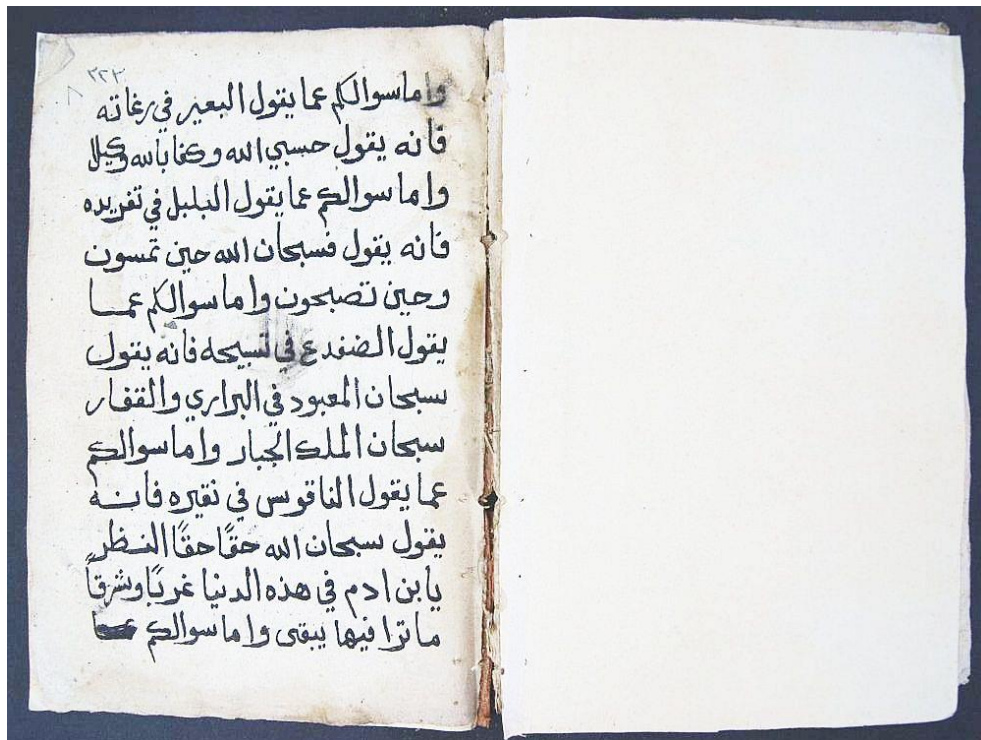 ٢٢٣
٨
واما سوالكم عما يقول البعير في رغاته
فانه يقول حسبي الله وكفا بالله وكيلا
واما سوالكم عما يقول البلبل في تغريده
فانه يقول فسبحان الله حين تمسون
وحين تصبحون واما سوالكم عما
يقول الضفدع في تسبيحه فانه يقول
سبحان المعبود في البراري والقفار
سبحان الملك الجبار واما سوالكم
عما يقول الناقوس في نقيره فانه
يقول سبحان الله حقًا حقًا النظر
يابن ادم في هذه الدنيا غربًا وشرقًا
ما ترا فيها يبقى واما سوالكم